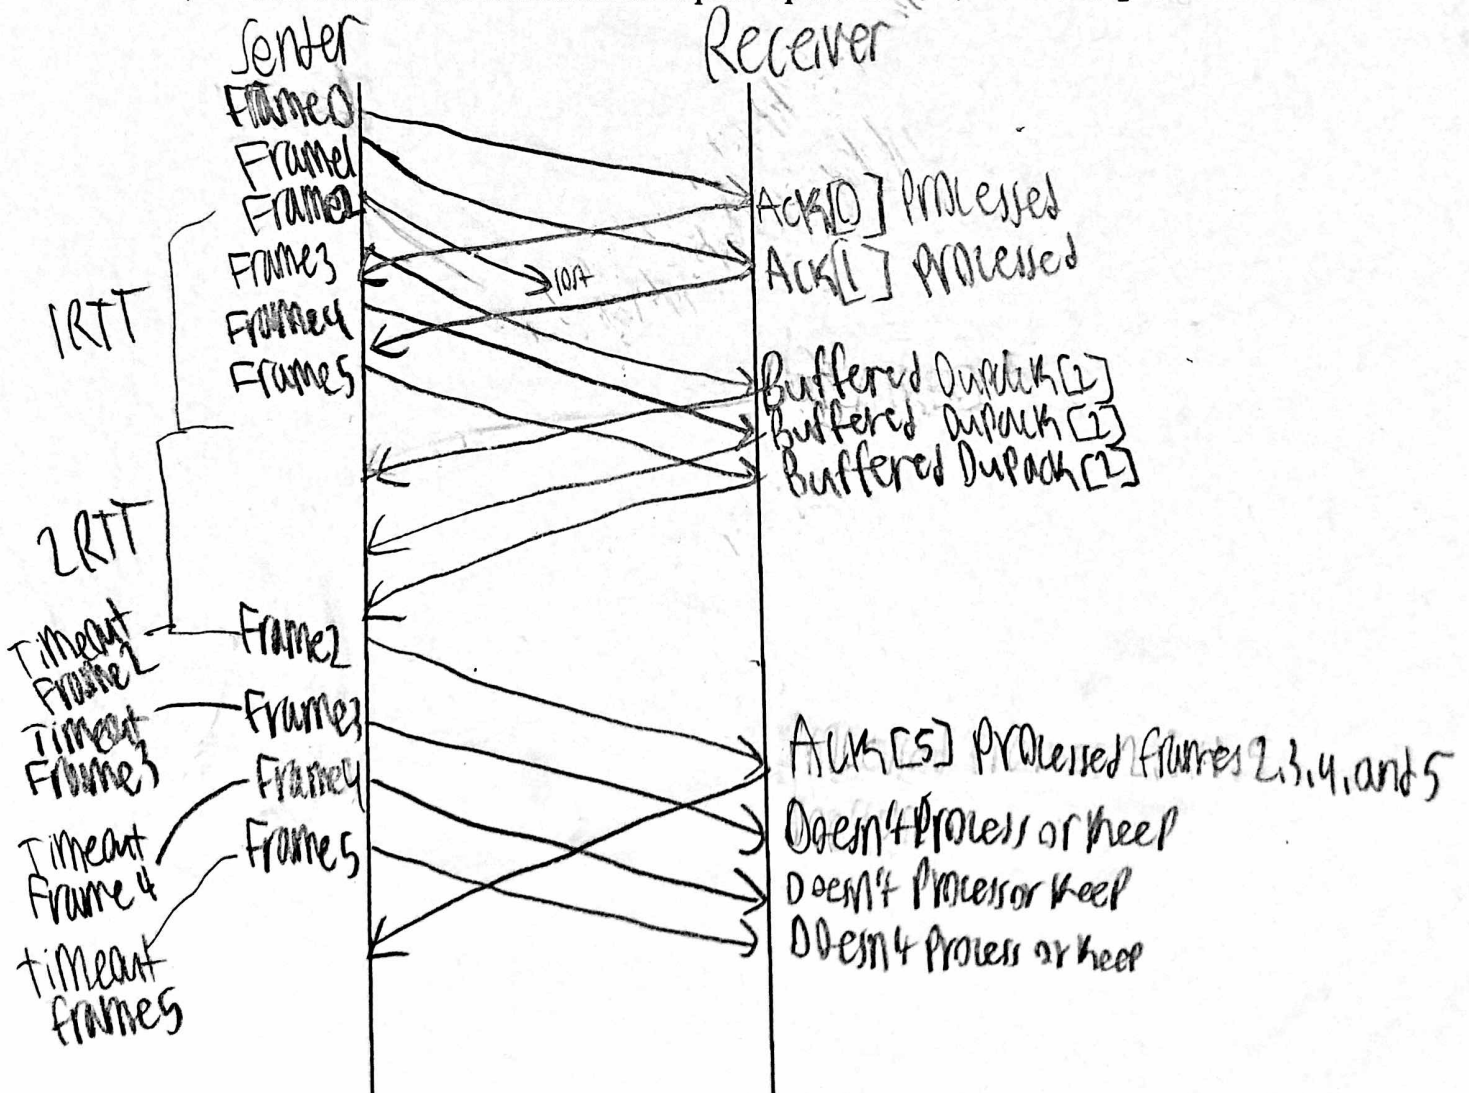 Sender
Receiver
Frame0
Frame1
Frame2
Frame3
Frame4
Frame5
1RTT
2RTT
lost
Ack[0] Processed
Ack[1] Processed
Buffered DupAck[1]
Buffered DupAck[1]
Buffered DupAck[1]
Timeout
Frame2
Frame2
Timeout
Frame3
Frame3
Timeout
Frame4
Frame4
timeout
frame5
Frame5
Ack[5] Processed frames 2,3,4, and 5
Doesn't Process or Keep
Doesn't Process or Keep
Doesn't Process or Keep